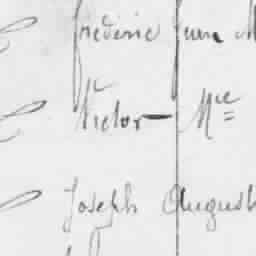 frédéric Jean M
Victor Mce
Joseph August